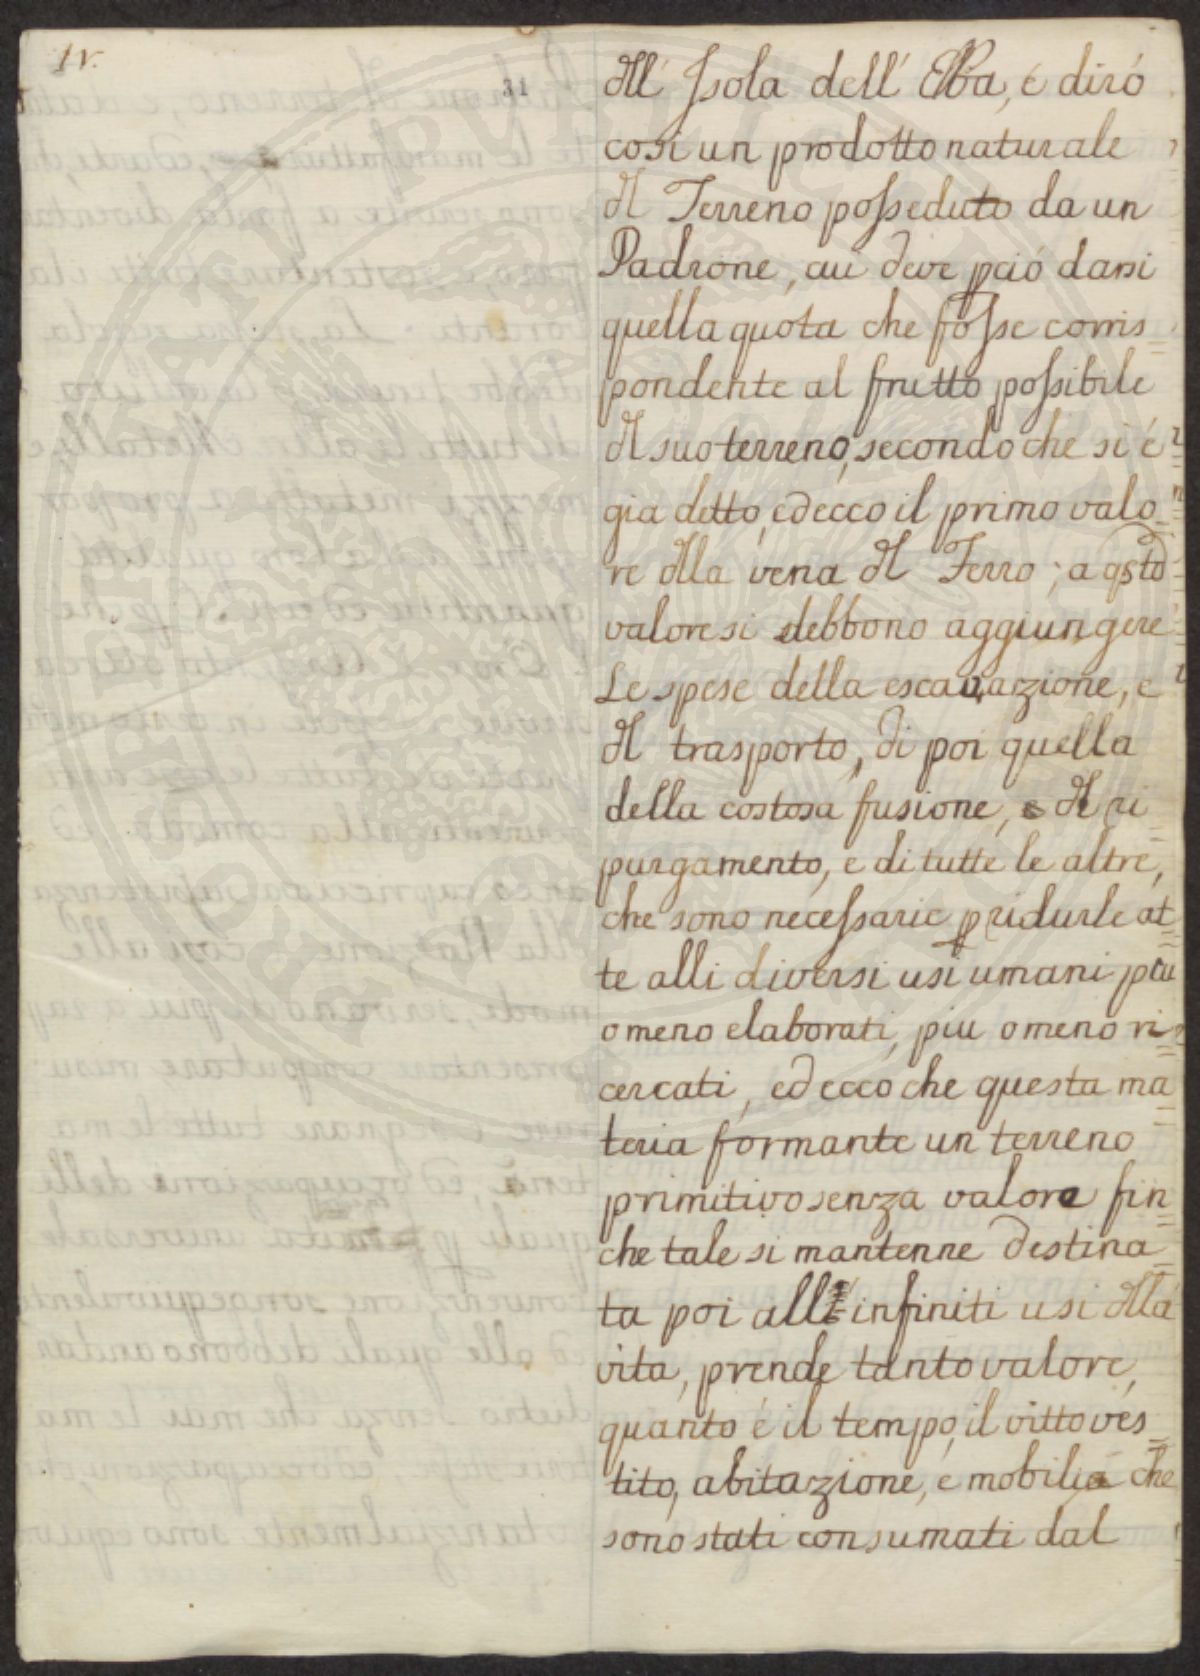 IV.
31
dll' Isola dell' Elba, é diró
cosi un prodotto naturale
dl Terreno posseduto da un
Padrone, cui deve pció darsi
quella quota che fosse corris=
pondente al frutto possibile
dl suo terreno, secondo che si é
gia detto, ed ecco il primo valo=
re dlla vena dl Ferro; a qsto
valore si debbono aggiungere
Le spese della escavazione, e
dl trasporto, di poi quella
della costosa fusione, e dl ri=
purgamento, e di tutte le altre,
che sono necessarie p ridurle at=
te alli diversi usi umani piu
o meno elaborati, piu o meno ri=
cercati, ed ecco che questa ma=
teria formante un terreno
primitivo senza valore fin=
che tale si mantenne destina=
ta poi alli infiniti usi dlla
vita, prende tanto valore,
quanto é il tempo, il vitto ves=
tito, abitazione, e mobilia che
sono stati consumati dal